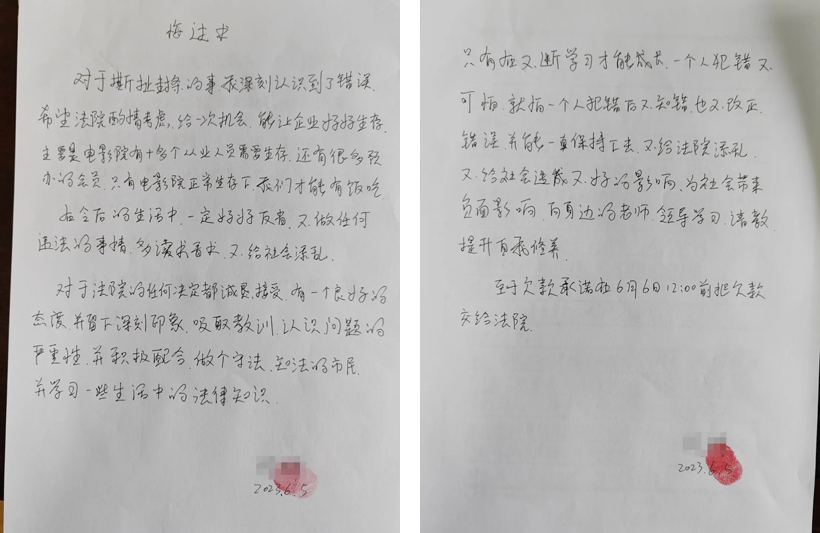 悔过书
对于撕扯封条的事我深刻认识到了错误
希望法院酌情考虑,给一次机会,能让企业好好生存,
主要是电影院有十多个从业人员需要生存,还有很多预
办的会员,只有电影院正常生存下,我们才能有饭吃
在今后的生活中,一定好好反省,不做任何
违法的事情,多读书看书,不给社会添乱,
对于法院的任何决定都诚恳接受,有一个良好的
态度,并留下深刻印象,吸取教训,认识问题的
严重性,并积极配合,做个守法,知法的市民,
并学习一些生活中的法律知识.
2023.6.5
只有在不断学习才能成长,一个人犯错不
可怕,就怕一个人犯错后不知错,也不改正
错误,并能一直保持下去,不给法院添乱,
不给社会造成不好的影响,为社会带来
负面影响,向身边的老师,领导学习,请教,
提升自我修养,
至于欠款承诺在6月6日12:00前把欠款
交给法院.
2023.6.5